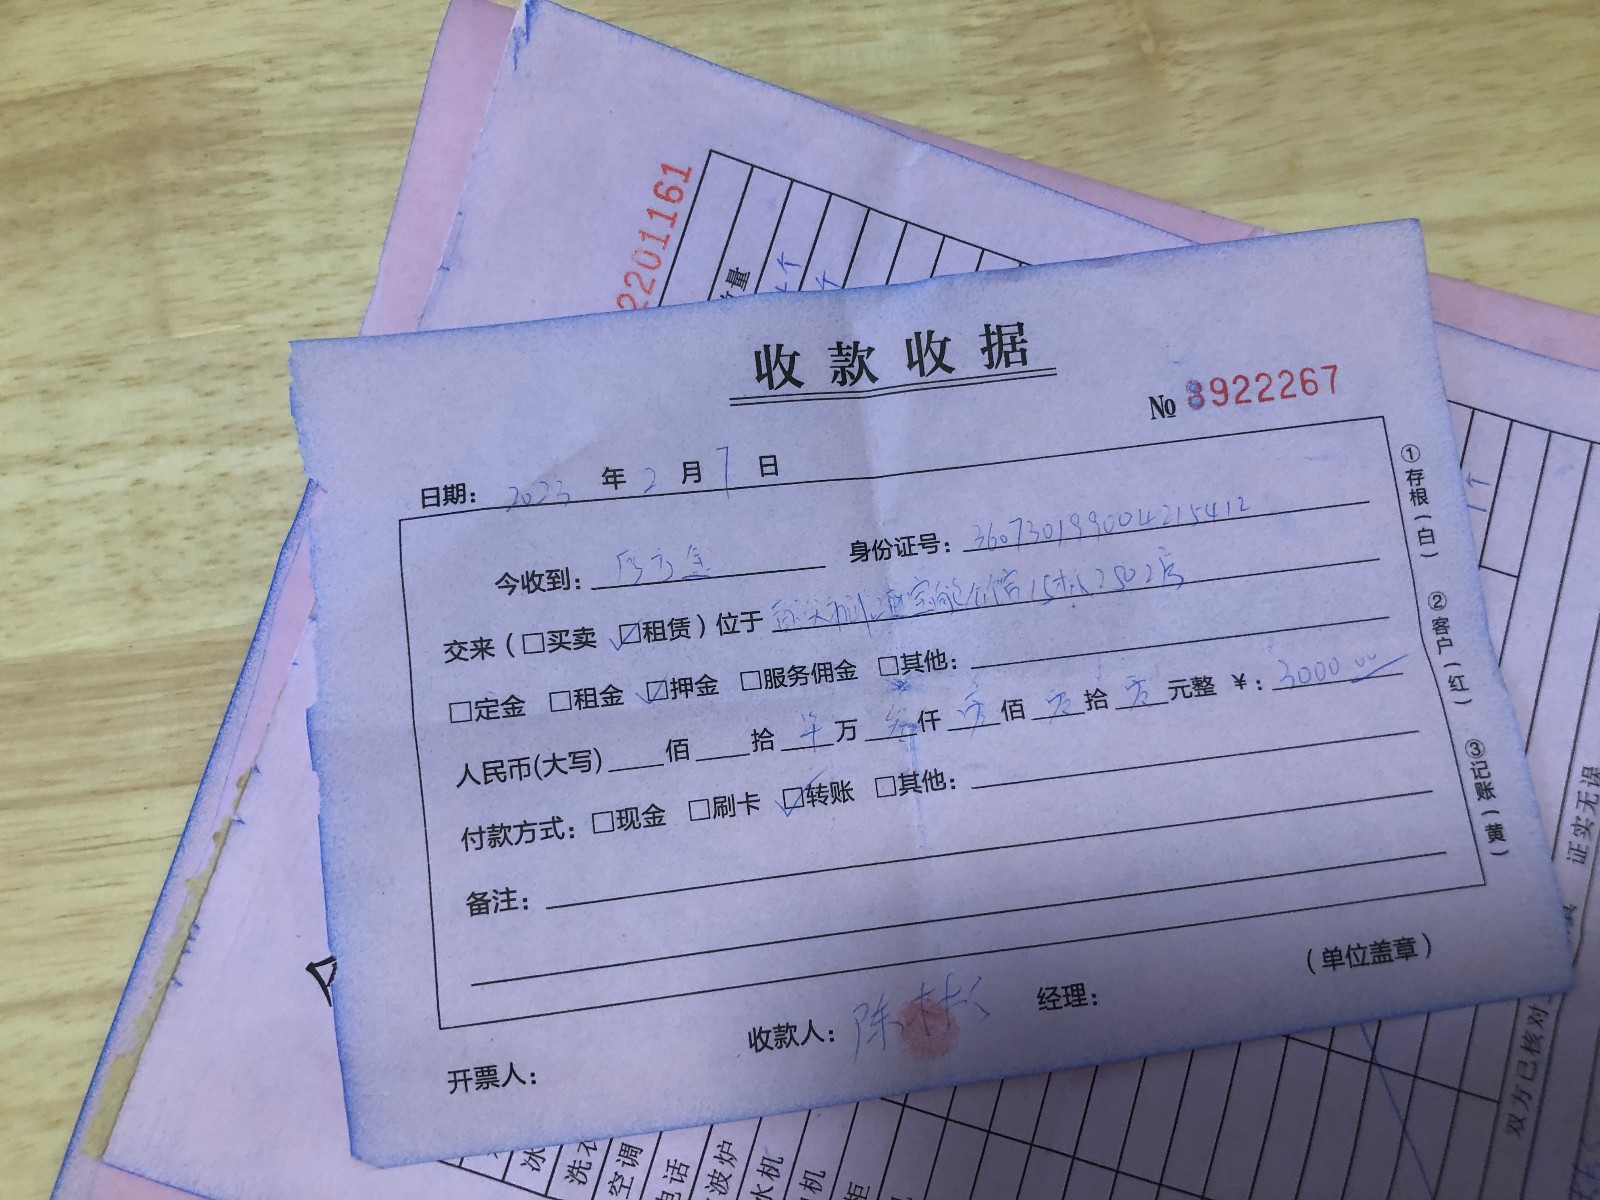 2201161
数量
收款收据
№ 8922267
日期: 2023 年 2 月 7 日
今收到: 身份证号: 360730199004215412
交来(□买卖 ☑租赁)位于 15栋2502房
□定金 □租金 ☑押金 □服务佣金 □其他:
人民币(大写) 佰 拾 万 叁仟 零佰 零拾 零元整 ¥: 3000.00
付款方式: □现金 □刷卡 ☑转账 □其他:
备注:
(单位盖章)
开票人: 收款人: 陈彬 经理:
①存根(白)
②客户(红)
③记账(黄)
空调
证实无误
双方已核对